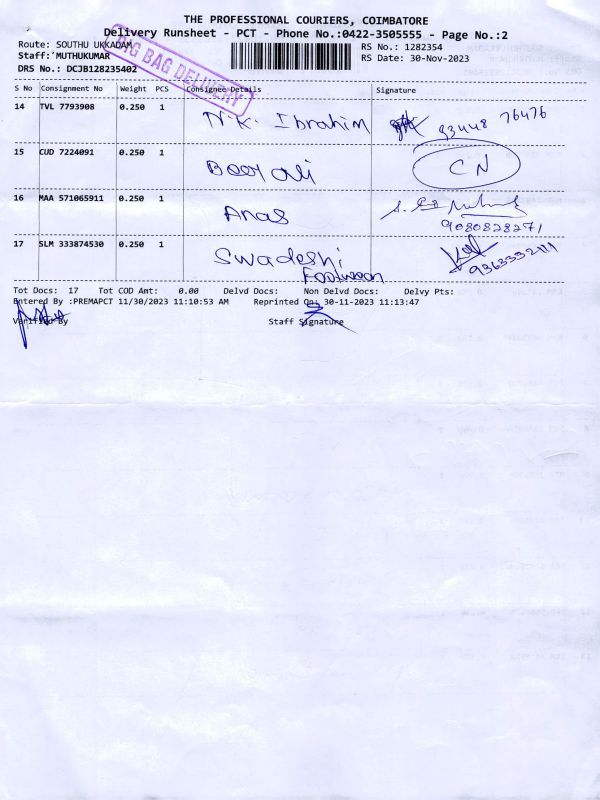 THE PROFESSIONAL COURIERS, COIMBATORE
Delivery Runsheet - PCT - Phone No.:0422-3505555 - Page No.:2
Route: SOUTHU UKKADAM
RS No.: 1282354
Staff: MUTHUKUMAR
RS Date: 30-Nov-2023
DRS No.: DCJB128235402
BIG BAG DELIVERY
S No Consignment No Weight PCS Consignee Details Signature
14 TVL 7793908 0.250 1 N.K. Ibrahim 93448 76476
15 CUD 7224091 0.250 1 CN
16 MAA 571065911 0.250 1 Anas 9080828271
17 SLM 333874530 0.250 1 Swadeshi
Footwear
Tot Docs: 17 Tot COD Amt: 0.00 Delvd Docs: Non Delvd Docs: Delvy Pts:
Entered By :PREMAPCT 11/30/2023 11:10:53 AM Reprinted On: 30-11-2023 11:13:47
Verified By Staff Signature